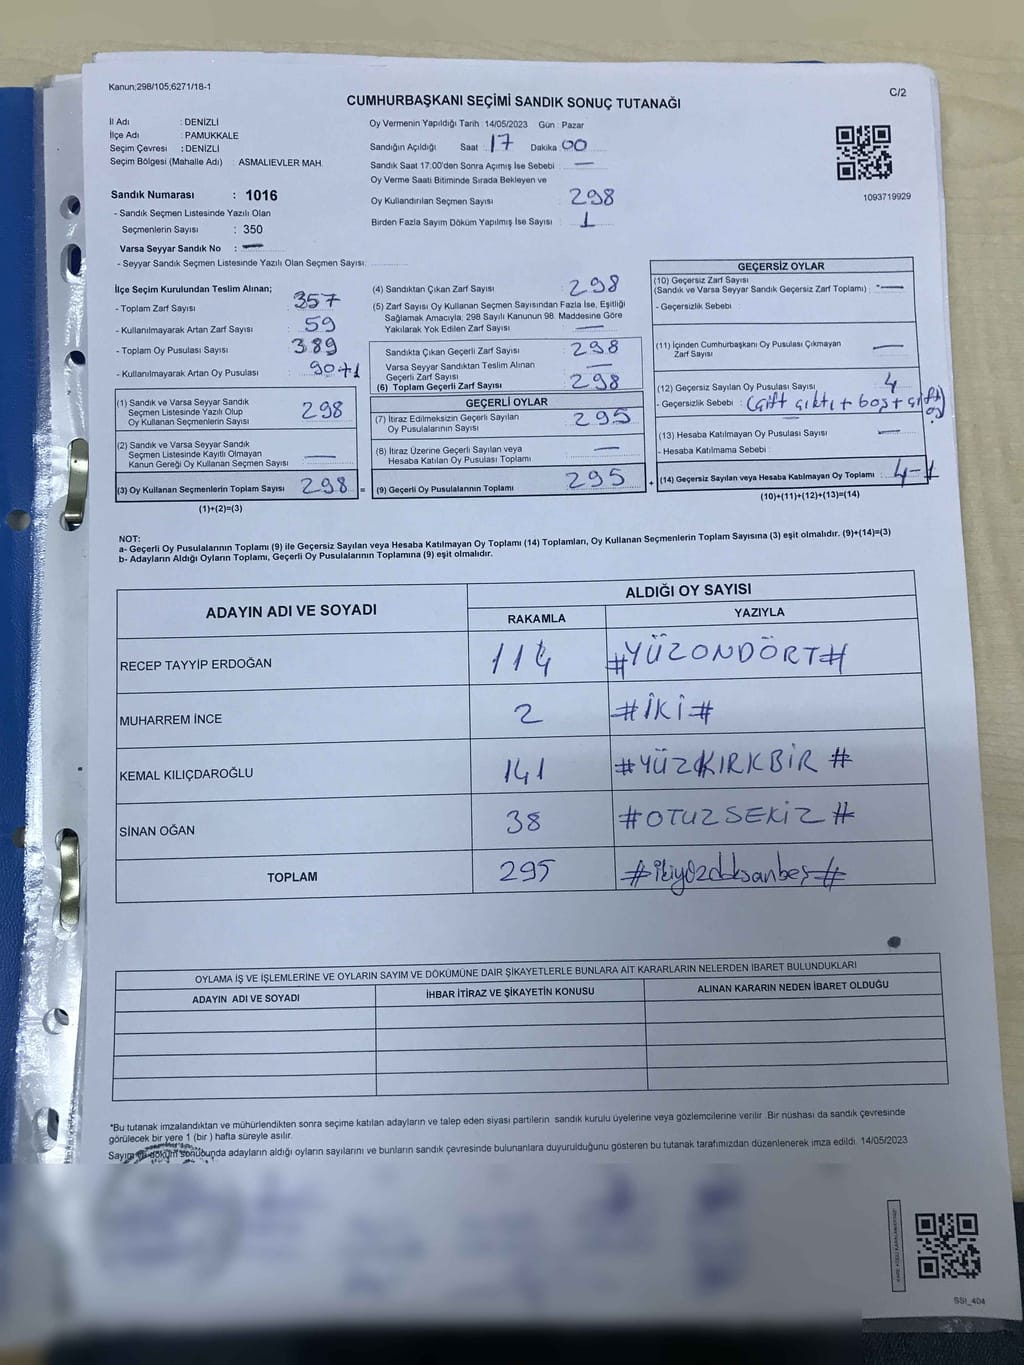 Kanun;298/105;6271/18-1
C/2
CUMHURBAŞKANI SEÇİMİ SANDIK SONUÇ TUTANAĞI
İl Adı : DENİZLİ
İlçe Adı : PAMUKKALE
Seçim Çevresi : DENİZLİ
Seçim Bölgesi (Mahalle Adı) : ASMALIEVLER MAH.
Sandık Numarası : 1016
- Sandık Seçmen Listesinde Yazılı Olan
Seçmenlerin Sayısı : 350
Varsa Seyyar Sandık No : —
- Seyyar Sandık Seçmen Listesinde Yazılı Olan Seçmen Sayısı:
Oy Vermenin Yapıldığı Tarih :14/05/2023 Gün : Pazar
Sandığın Açıldığı Saat : 17 Dakika 00
Sandık Saat 17:00'den Sonra Açımış İse Sebebi : —
Oy Verme Saati Bitiminde Sırada Bekleyen ve
Oy Kullandırılan Seçmen Sayısı : 298
Birden Fazla Sayım Döküm Yapılmış İse Sayısı : 1
1093719929
İlçe Seçim Kurulundan Teslim Alınan;
- Toplam Zarf Sayısı : 357
- Kullanılmayarak Artan Zarf Sayısı : 59
- Toplam Oy Pusulası Sayısı : 389
- Kullanılmayarak Artan Oy Pusulası : 90+1
(1) Sandık ve Varsa Seyyar Sandık
Seçmen Listesinde Yazılı Olup
Oy Kullanan Seçmenlerin Sayısı : 298
(2) Sandık ve Varsa Seyyar Sandık
Seçmen Listesinde Kayıtlı Olmayan
Kanun Gereği Oy Kullanan Seçmen Sayısı : —
(3) Oy Kullanan Seçmenlerin Toplam Sayısı : 298 =
(1)+(2)=(3)
(4) Sandıktan Çıkan Zarf Sayısı : 298
(5) Zarf Sayısı Oy Kullanan Seçmen Sayısından Fazla İse, Eşitliği
Sağlamak Amacıyla; 298 Sayılı Kanunun 98. Maddesine Göre
Yakılarak Yok Edilen Zarf Sayısı : —
Sandıkta Çıkan Geçerli Zarf Sayısı : 298
Varsa Seyyar Sandıktan Teslim Alınan
Geçerli Zarf Sayısı : —
(6) Toplam Geçerli Zarf Sayısı : 298
GEÇERLİ OYLAR
(7) İtiraz Edilmeksizin Geçerli Sayılan
Oy Pusulalarının Sayısı : 295
(8) İtiraz Üzerine Geçerli Sayılan veya
Hesaba Katılan Oy Pusulası Toplamı : —
(9) Geçerli Oy Pusulalarının Toplamı : 295 +
GEÇERSİZ OYLAR
(10) Geçersiz Zarf Sayısı
(Sandık ve Varsa Seyyar Sandık Geçersiz Zarf Toplamı) : —
- Geçersizlik Sebebi :
(11) İçinden Cumhurbaşkanı Oy Pusulası Çıkmayan
Zarf Sayısı : —
(12) Geçersiz Sayılan Oy Pusulası Sayısı : 4
- Geçersizlik Sebebi : (çift çıktı + boş + çift oy)
(13) Hesaba Katılmayan Oy Pusulası Sayısı : —
- Hesaba Katılmama Sebebi :
(14) Geçersiz Sayılan veya Hesaba Katılmayan Oy Toplamı : 4-1
(10)+(11)+(12)+(13)=(14)
NOT:
a- Geçerli Oy Pusulalarının Toplamı (9) ile Geçersiz Sayılan veya Hesaba Katılmayan Oy Toplamı (14) Toplamları, Oy Kullanan Seçmenlerin Toplam Sayısına (3) eşit olmalıdır. (9)+(14)=(3)
b- Adayların Aldığı Oyların Toplamı, Geçerli Oy Pusulalarının Toplamına (9) eşit olmalıdır.
ADAYIN ADI VE SOYADI
ALDIĞI OY SAYISI
RAKAMLA YAZIYLA
RECEP TAYYİP ERDOĞAN 114 #YÜZONDÖRT#
MUHARREM İNCE 2 #İKİ#
KEMAL KILIÇDAROĞLU 141 #YÜZKIRKBİR #
SİNAN OĞAN 38 #OTUZSEKİZ #
TOPLAM 295 #ikiyüzdoksanbeş#
OYLAMA İŞ VE İŞLEMLERİNE VE OYLARIN SAYIM VE DÖKÜMÜNE DAİR ŞİKAYETLERLE BUNLARA AİT KARARLARIN NELERDEN İBARET BULUNDUKLARI
ADAYIN ADI VE SOYADI İHBAR İTİRAZ VE ŞİKAYETİN KONUSU ALINAN KARARIN NEDEN İBARET OLDUĞU
*Bu tutanak imzalandıktan ve mühürlendikten sonra seçime katılan adayların ve talep eden siyasi partilerin sandık kurulu üyelerine veya gözlemcilerine verilir. Bir nüshası da sandık çevresinde
görülecek bir yere 1 (bir ) hafta süreyle asılır.
Sayım ve döküm sonucunda adayların aldığı oyların sayılarını ve bunların sandık çevresinde bulunanlara duyurulduğunu gösteren bu tutanak tarafımızdan düzenlenerek imza edildi. 14/05/2023
SSI_404